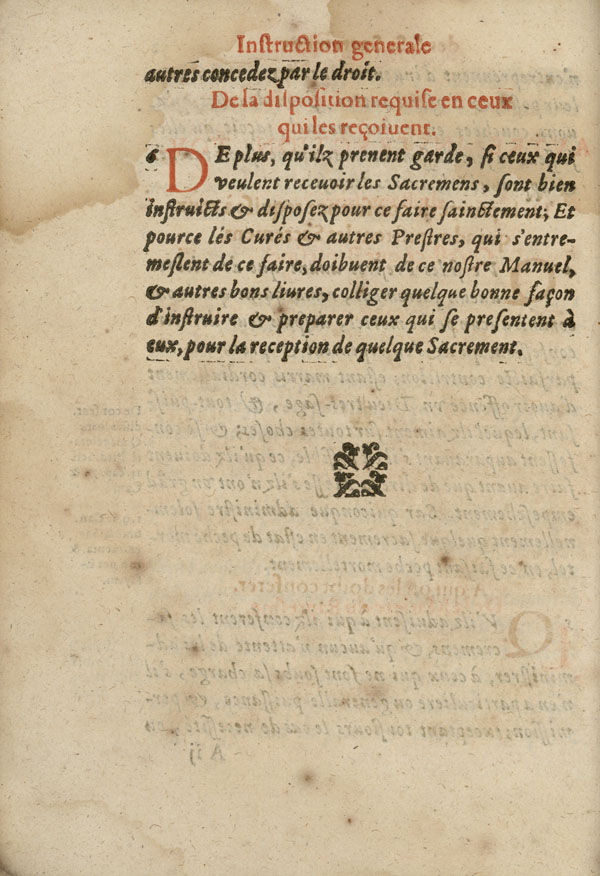 Instruction generale
autres concedez par le droit.
De la disposition requise en ceux
qui les reçoiuent.
6 DE plus, qu'ilz prenent garde, si ceux qui
veulent receuoir les Sacremens, sont bien
instruicts & disposez pour ce faire sainctement; Et
pource les Curés & autres Prestres, qui s'entre-
meslent de ce faire, doibuent de ce nostre Manuel,
& autres bons liures, colliger quelque bonne façon
d'instruire & preparer ceux qui se presentent à
eux, pour la reception de quelque Sacrement.